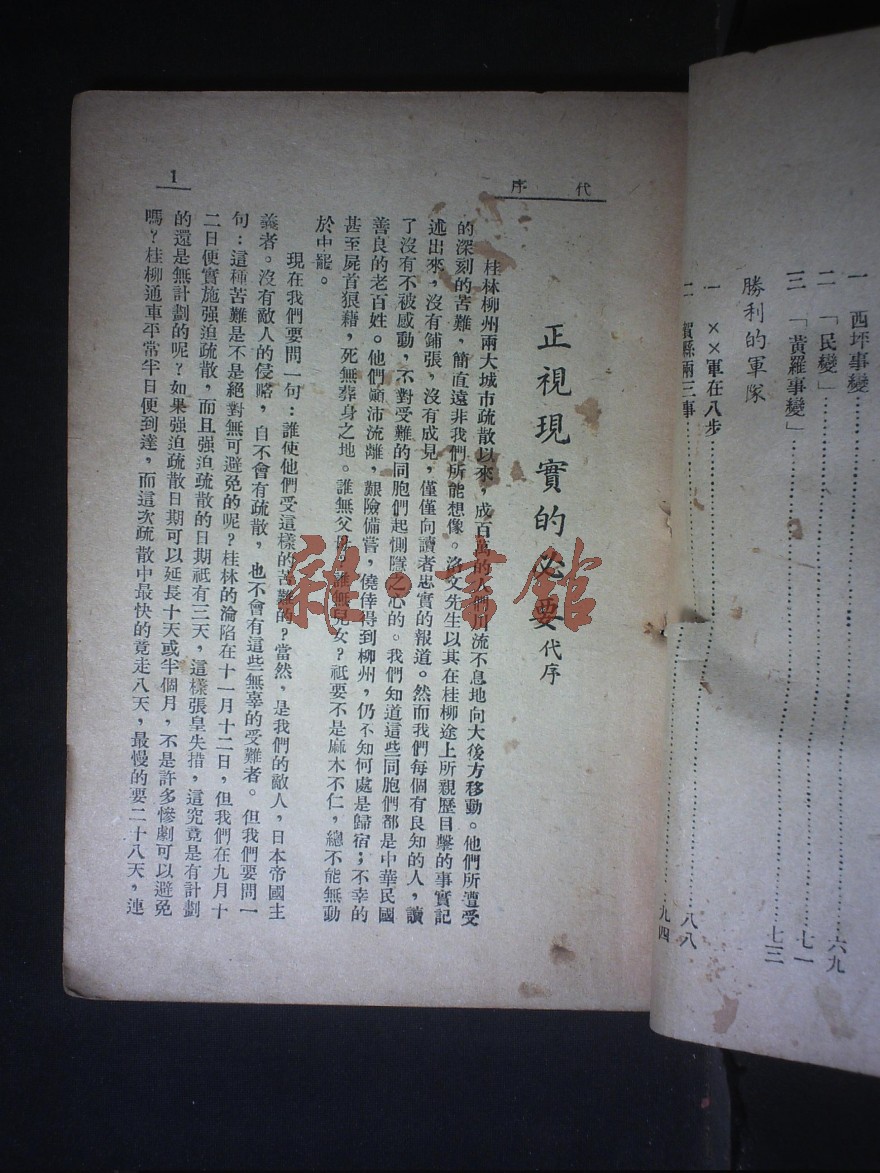 一　西坪事變……六九
二　「民變」……七一
三　「黃羅事變」……七三
勝利的軍隊
一　××軍在八步……八八
二　賀縣兩三事……九四
代序
正視現實的必要代序
桂林柳州兩大城市疏散以來，成百萬的人們川流不息地向大後方移動。他們所遭受
的深刻的苦難，簡直遠非我們所能想像。洛文先生以其在桂柳途上所親歷目擊的事實記
述出來，沒有鋪張，沒有成見，僅僅向讀者忠實的報道。然而我們每個有良知的人，讀
了沒有不被感動，不對受難的同胞們起惻隱之心的。我們知道這些同胞們都是中華民國
善良的老百姓。他們顚沛流離，艱險備嘗，僥倖得到柳州，仍不知何處是歸宿；不幸的
甚至屍首狼藉，死無葬身之地。誰無父母？誰無兒女？祗要不是麻木不仁，總不能無動
於中罷。
現在我們要問一句：誰使他們受這樣的苦難的？當然，是我們的敵人，日本帝國主
義者。沒有敵人的侵略，自不會有疏散，也不會有這些無辜的受難者。但我們要問一
句：這種苦難是不是絕對無可避免的呢？桂林的淪陷在十一月十二日，但我們在九月十
二日便實施强迫疏散，而且强迫疏散的日期祗有三天，這樣張皇失措，這究竟是有計劃
的還是無計劃的呢？如果强迫疏散日期可以延長十天或半個月，不是許多慘劇可以避免
嗎？桂柳通車平常半日便到達，而這次疏散中最快的竟走八天，最慢的要二十八天，連
1
雜·書館